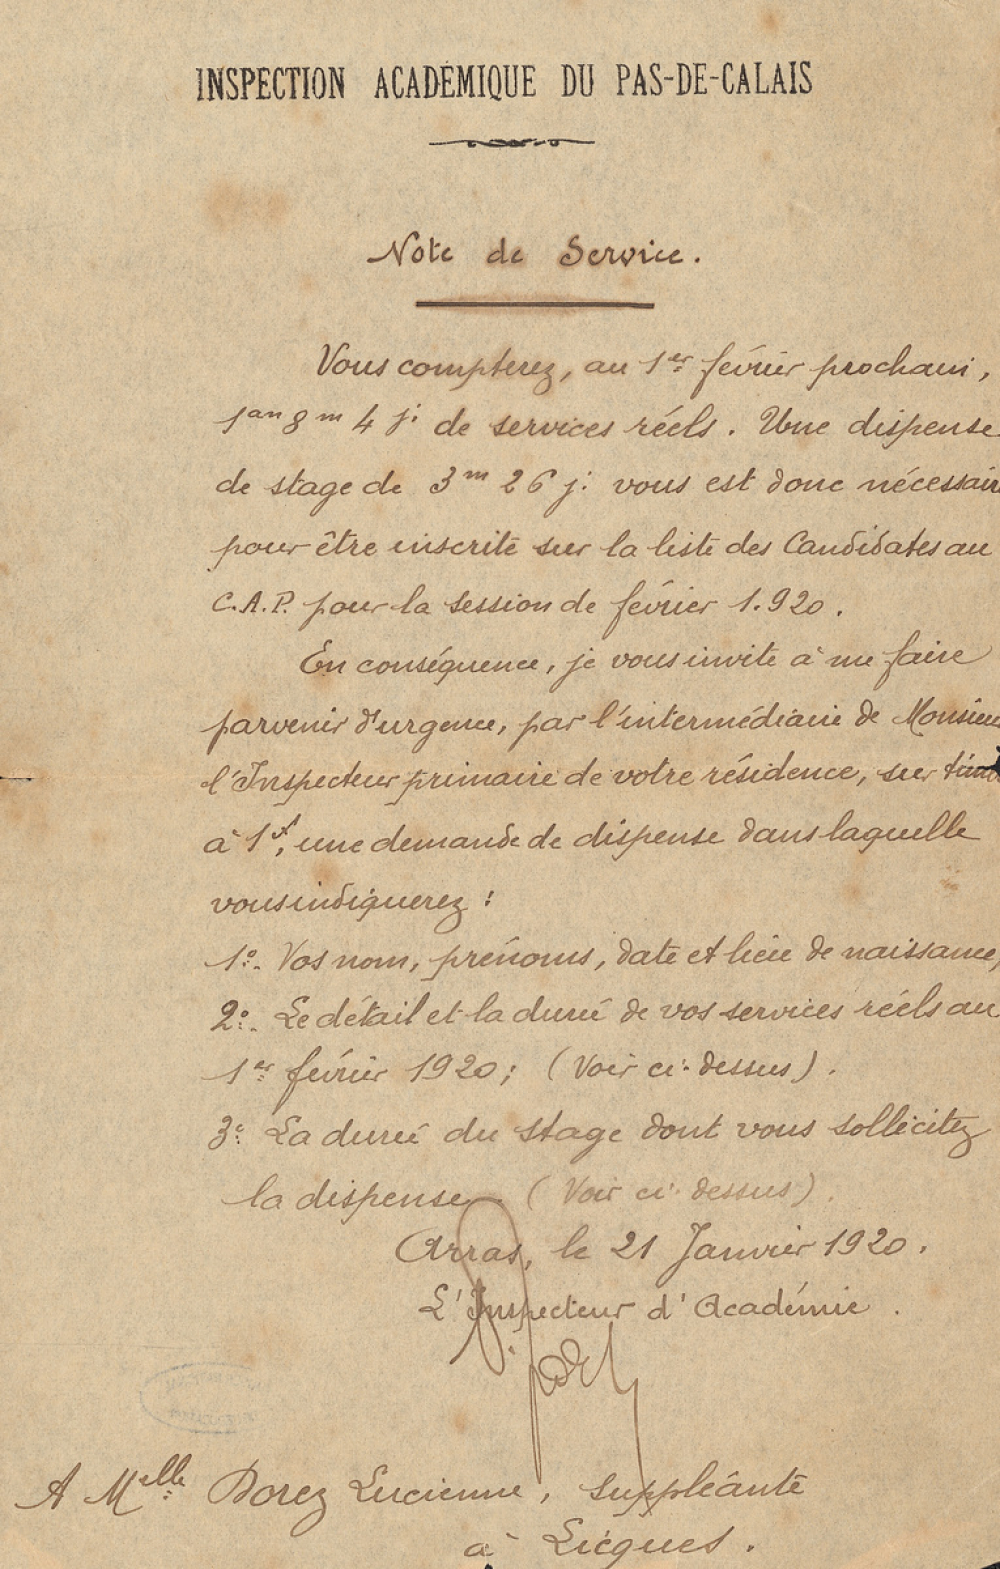 INSPECTION ACADÉMIQUE DU PAS-DE-CALAIS
Note de Service.
Vous compterez, au 1er février prochain,
1 an 8 m 4 j. de services réels. Une dispense
de stage de 3 m 26 j. vous est donc nécessair
pour être inscrite sur la liste des Candidates au
C.A.P. pour la session de février 1.920.
En conséquence, je vous invite à me faire
parvenir d'urgence, par l'intermédiaire de Monsieu
l'Inspecteur primaire de votre résidence, sur
à 1f, une demande de dispense dans laquelle
vous indiquerez :
1o. Vos nom, prénoms, date et lieu de naissance,
2o. Le détail et la durée de vos services réels au
1er février 1920; (Voir ci-dessus).
3o La durée du stage dont vous sollicitez
la dispense. (Voir ci-dessus).
Arras, le 21 Janvier 1920.
L'Inspecteur d'Académie.
A Melle Dorez Lucienne, suppléante
à Licques.